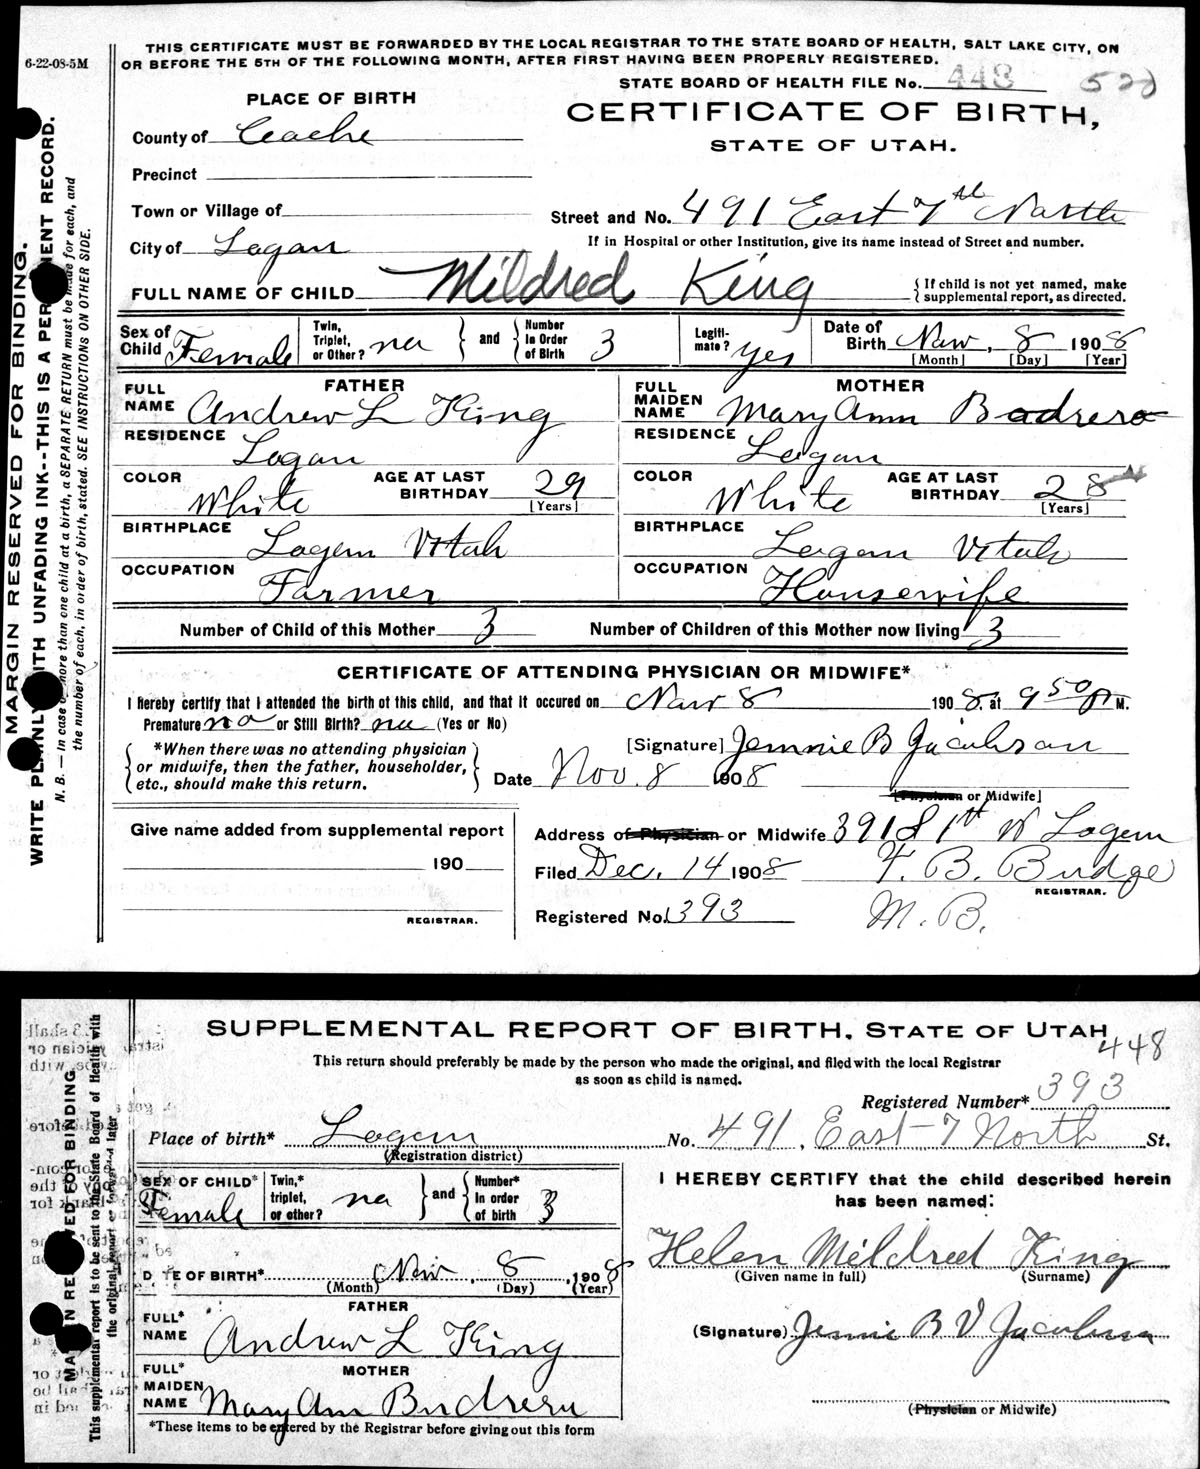 6-22-08-5M
THIS CERTIFICATE MUST BE FORWARDED BY THE LOCAL REGISTRAR TO THE STATE BOARD OF HEALTH, SALT LAKE CITY, ON
OR BEFORE THE 5TH OF THE FOLLOWING MONTH, AFTER FIRST HAVING BEEN PROPERLY REGISTERED.
STATE BOARD OF HEALTH FILE No. 448
PLACE OF BIRTH
CERTIFICATE OF BIRTH,
STATE OF UTAH.
County of Cache
Precinct
Town or Village of
Street and No. 491 East 7th North
City of Logan
If in Hospital or other Institution, give its name instead of Street and number.
FULL NAME OF CHILD Mildred King
{If child is not yet named, make supplemental report, as directed.
Sex of Child Female
Twin, Triplet, or Other? no } and { Number in Order of Birth 3
Legitimate? yes
Date of Birth Nov. 8 1908
[Month] [Day] [Year]
FATHER
FULL NAME Andrew L King
RESIDENCE Logan
COLOR White AGE AT LAST BIRTHDAY 29 [Years]
BIRTHPLACE Logan Utah
OCCUPATION Farmer
MOTHER
FULL MAIDEN NAME Mary Ann Budrero
RESIDENCE Logan
COLOR White AGE AT LAST BIRTHDAY 28 [Years]
BIRTHPLACE Logan Utah
OCCUPATION Housewife
Number of Child of this Mother 3 Number of Children of this Mother now living 3
CERTIFICATE OF ATTENDING PHYSICIAN OR MIDWIFE*
I hereby certify that I attended the birth of this child, and that it occured on Nov 8 1908. at 9 50 P M.
Premature no or Still Birth? no (Yes or No)
{*When there was no attending physician
or midwife, then the father, householder,
etc., should make this return.}
[Signature] Jennie B Jacobson
Date Nov. 8 1908
[Physician or Midwife]
Give name added from supplemental report
190
REGISTRAR.
Address of Physician or Midwife 391 S 1st W Logan
Filed Dec. 14 1908 T. B. Budge
REGISTRAR.
Registered No. 393 M. B.
MARGIN RESERVED FOR BINDING.
WRITE PLAINLY WITH UNFADING INK--THIS IS A PERMANENT RECORD.
N. B. — In case of more than one child at a birth, a SEPARATE RETURN must be made for each, and
the number of each, in order of birth, stated. SEE INSTRUCTIONS ON OTHER SIDE.
SUPPLEMENTAL REPORT OF BIRTH, STATE OF UTAH
448
This return should preferably be made by the person who made the original, and filed with the local Registrar
as soon as child is named.
Registered Number* 393
Place of birth* Logan No. 491. East 7 North St.
(Registration district)
SEX OF CHILD* Female
Twin,* triplet, or other? no } and { Number* in order of birth 3
DATE OF BIRTH* Nov. 8, 1908
(Month) (Day) (Year)
FATHER
FULL* NAME Andrew L King
MOTHER
FULL* MAIDEN NAME Mary Ann Budrero
*These items to be entered by the Registrar before giving out this form
I HEREBY CERTIFY that the child described herein
has been named:
Helen Mildred King
(Given name in full) (Surname)
(Signature) Jennie B V Jacobson
(Physician or Midwife)
MARGIN RESERVED FOR BINDING
This supplemental report is to be sent to the State Board of Health with
the original report or forwarded later